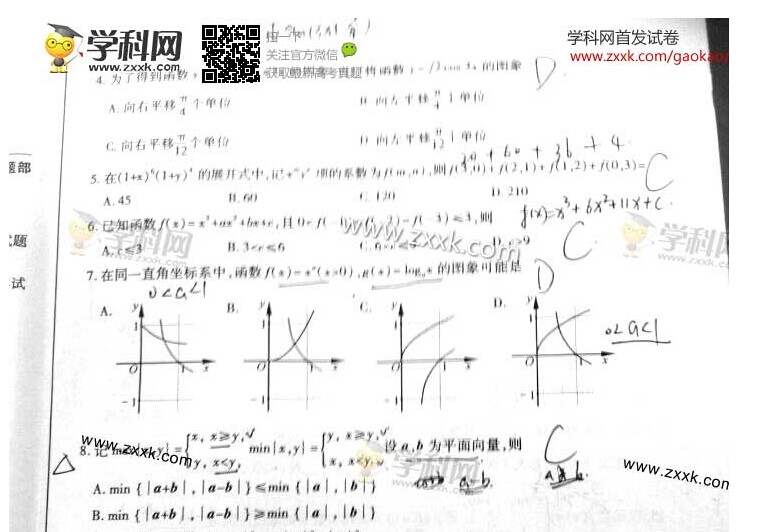 学科网
www.zxxk.com
扫一下
关注官方微信
获取最新高考真题
学科网首发试卷
www.zxxk.com/gaokao/
4. 为了得到函数 的图象 D.
A. 向右平移 π/4 个单位 B. 向左平移 π/4 个单位
C. 向右平移 π/12 个单位 D. 向左平移 π/12 个单位
20 + 60 + 36 + 4.
题部
5. 在(1+x)⁶(1+y)⁴ 的展开式中,记 项的系数为 f(m,n),则 f(3,0)+f(2,1)+f(1,2)+f(0,3)= C
A. 45 B. 60 C. 120 D. 210
f(x)=x³+6x²+11x+c.
6. 已知函数 f(x)=x³+ax²+bx+c,且 0<f(-1)=f(-2)=f(-3)≤3,则 C.
A. c≤3 B. 3<c≤6 C. 6<c≤9 D. c>9
www.zxxk.com
学科网
zxxk.com
试题
7. 在同一直角坐标系中,函数 f(x)=xᵃ(x>0),g(x)=logₐx 的图象可能是 D
试
0<a<1
A. B. C. D.
y 1 O 1 x -1
y 1 O 1 x -1
y 1 O 1 x -1
y 1 O 1 x -1
0<a<1
8. 记 max{x,y}={x, x≥y, y, x<y, min{x,y}={y, x≥y, x, x<y, 设 a,b 为平面向量,则 C
www.zxxk.com
学科网
a+b a-b
a b.
www.zxxk.com
A. min{|a+b|,|a-b|}≤min{|a|,|b|}
B. min{|a+b|,|a-b|}≥min{|a|,|b|}